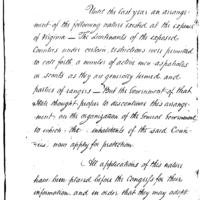 Until the last year an arrange-
ment of the following nature existed at the expense
of Virginia — The Lieutenants of the exposed
Counties under certain restrictions were permitted
to call forth a number of active men as patrols
or scouts as they are generally termed and
parties of rangers — But the Government of that
State thought proper to discontinue this arrange-
ment, on the organization of the General Government
to which the inhabitants of the said Coun-
ties, now apply for protection.
All applications of this nature
have been placed before the Congress for their
information, and in order that they may adopt